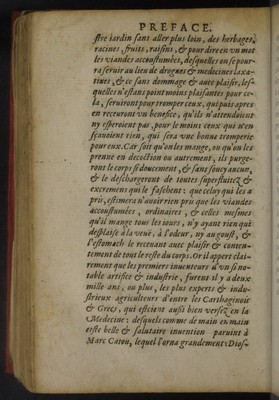 PREFACE.
ſtre iardin ſans aller plus loin, des herbages,
racines, fruits, raiſins, & pour dire en vn mot
les viandes accouſtumées, deſquelles on ſe pour-
ra ſeruir au lieu de drogues & medecines laxa-
tiues, & ce ſans dommage & auec plaiſir, leſ-
quelles n'eſtans point moins plaiſantes pour ce-
la, ſeruiront pour tromper ceux, qui puis apres
en receuront vn benefice, qu'ils n'attendoient
ny eſperoient pas, pour le moins ceux qui n'en
ſçauoient rien, qui ſera vne bonne tromperie
pour eux. Car ſoit qu'on les mange, ou qu'on les
prenne en decoction ou autrement, ils purge-
ront le corps ſi doucement, & ſans ſoucy aucun,
& le deſchargeront de toutes ſuperfluitez &
excremens qui le faſchent: que celuy qui les a
pris, eſtimera n'auoir rien pris que les viandes
accouſtumées, ordinaires, & celles meſmes
qu'il mange tous les iours, n'y ayant rien qui
deſplaiſe à la veuë, à l'odeur, ny au gouſt, &
l'eſtomach le receuant auec plaiſir & conten-
tement de tout le reſte du corps. Or il appert clai-
rement que les premiers inuenteurs d'vn ſi no-
table artifice & induſtrie, furent il y a deux
mille ans, ou plus, les plus experts & indu-
ſtrieux agriculteurs d'entre les Carthaginois
& Grecs, qui eſtoient auſſi bien verſez en la
Medecine: deſquels comme de main en main
ceſte belle & ſalutaire inuention paruint à
Marc Caton, lequel l'orna grandement: Dioſ-